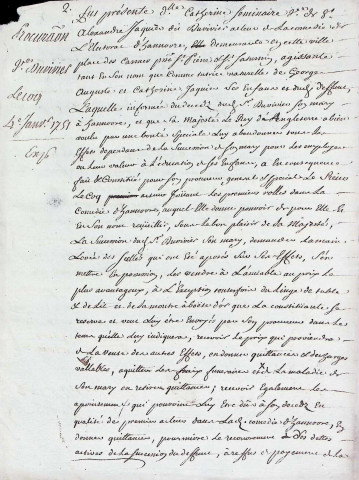 2.
Procuraõn
Vve Buvinier
Le Coq
4e Janvr 1751
Fut présente Dlle Catherine Seminaire Vve de Sr
Alexandre Jaques Buvinier acteur de la comédie de
L'Electorat d'hannovre, demeurante en cette ville
place des Carmes près St Sernin, agissante
tant en son nom que comme tutrice naturelle de George
Auguste et Catherine Jaques Les Enfans et dud. deffunt,
Laquelle informée du decedz dud. Sr Buvinier son mary
à hannovre, et que Sa Majesté le Roy d'Angleterre a bien
voulu par une bonté spéciale Luy abandonner tous les
Effets dépendans de la Succession de son mary pour les employer
ou leur valeur à L'éducation de ses Enfans, a en consequence
fait & constitué pour son procureur general & special Le Sr Pierre
Le Coq acteur jouant Les premiers rolles dans La
Comédie d'hannovre, auquel Elle donne pouvoir de pour Elle et
En Son nom recueillir, sous le bon plaisir de Sa Majesté,
La Succession dud. Sr Buvinier Son mary, demander La main
Levée des scellés qui ont été apposés sur ses Effets, S'en
mettre en possession, les vendre à L'amiable au prix le
plus avantageux, à L'Exception toutesfois du Linge de table
& de Lit et de la montre à boëte d'or que La constituante se
reserve et veut Luy être Envoyés par Son procureur dans le
tems qu'elle Luy indiquera, recevoir le prix qui proviendra
de La Vente des autres Effets, en donner quittances et descharges
vallables, aquitter les fraix funeraires & de La maladie de
Son mary en retirer quittances; recevoir Egalement les
apointemens qui pouvoient Luy Etre dûs à son decedz En
qualité de premier acteur dans La de comédie d'hannovre, En
donner quittances, poursuivre le recouvrement des dettes
actives de la succession du deffunt, à cet effet et payement de la